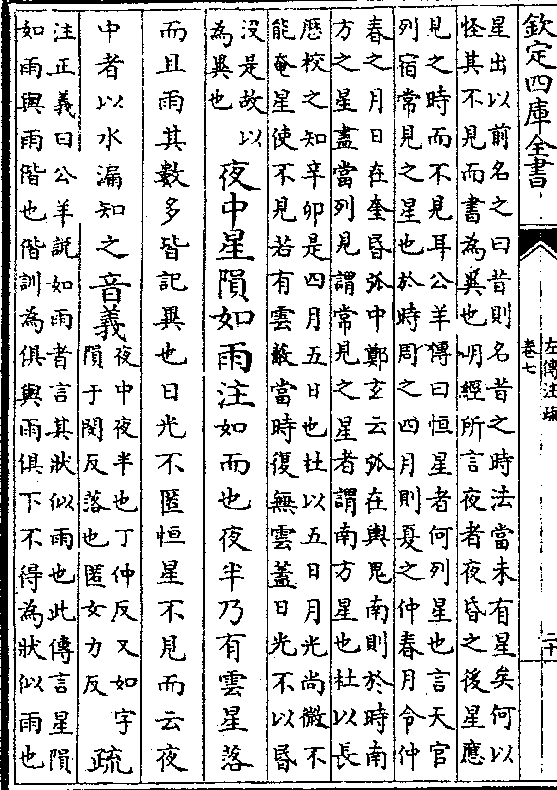 欽定四庫全書
左傳注疏
卷七
二十
星出以前名之曰昔則名昔之時法當未有星矣何以
怪其不見而書為異也明經所言夜者夜昏之後星應
見之時而不見耳公羊傳曰恒星者何列星也言天官
列宿常見之星也於時周之四月則夏之仲春月令仲
春之月日在奎昏弧中鄭玄云弧在輿鬼南則於時南
方之星盡當列見謂常見之星者謂南方星也杜以長
厯校之知辛卯是四月五日也杜以五日月光尚微不
能奄星使不見若有雲蔽當時復無雲蓋日光不以昏
没是故以
為異也
夜中星隕如雨注如而也夜半乃有雲星落
而且雨其數多皆記異也日光不匿恒星不見而云夜
中者以水漏知之音義
夜中夜半也丁仲反又如字
隕于閔反落也匿女力反
疏
注正義曰公羊説如雨者言其狀似雨也此傳言星隕
如雨與雨偕也偕訓為俱與雨俱下不得為狀似雨也